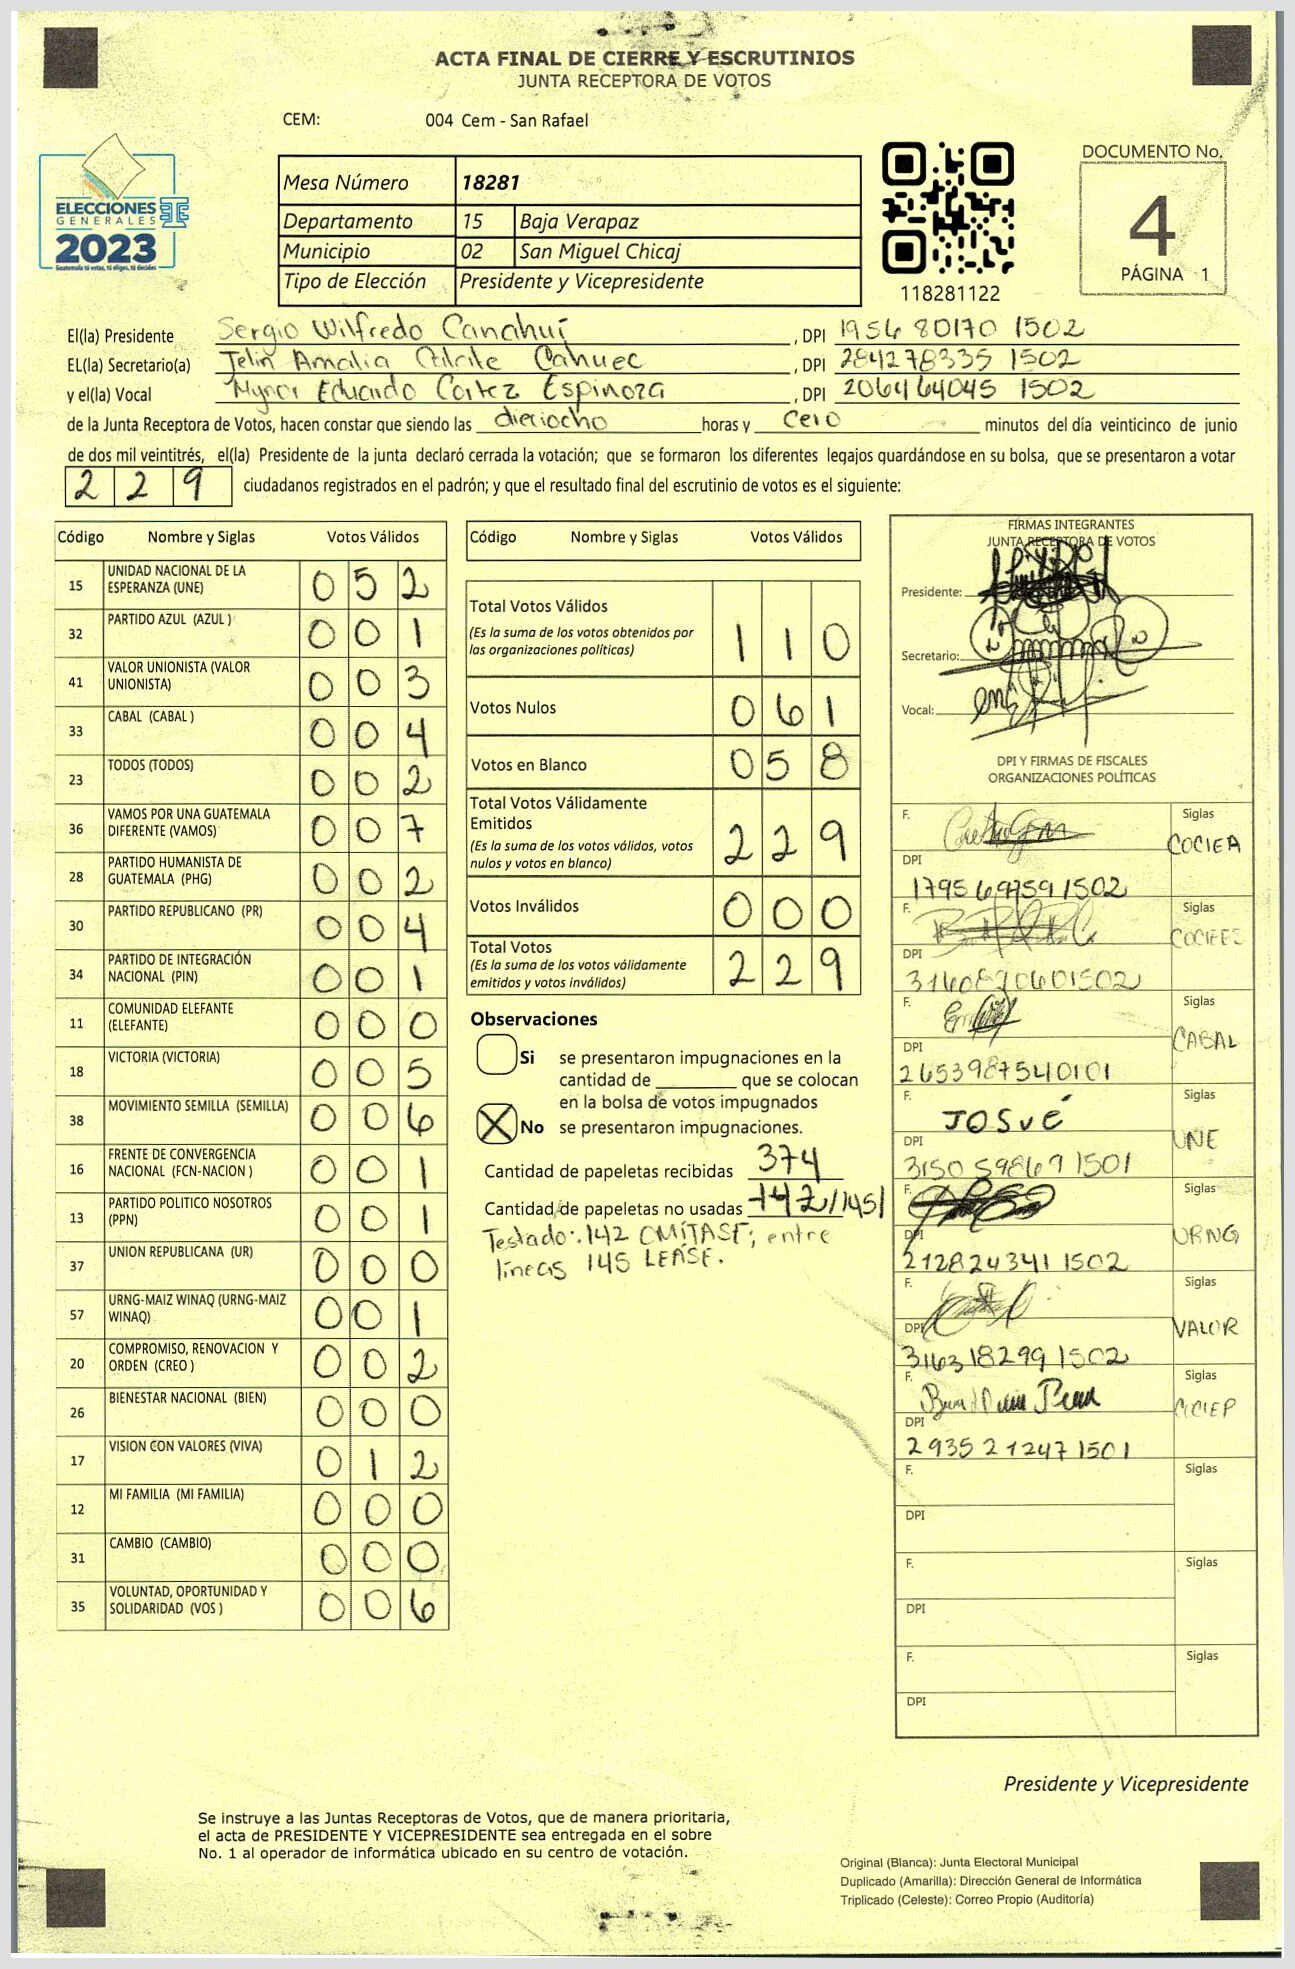 ACTA FINAL DE CIERRE Y ESCRUTINIOS
JUNTA RECEPTORA DE VOTOS
CEM: 004 Cem - San Rafael
ELECCIONES
GENERALES
2023
Guatemala tú votas, tú eliges, tú decides
Mesa Número 18281
Departamento 15 Baja Verapaz
Municipio 02 San Miguel Chicaj
Tipo de Elección Presidente y Vicepresidente
118281122
DOCUMENTO No.
4
PÁGINA 1
El(la) Presidente Sergio Wilfredo Canahuí, DPI 1956 80170 1502
EL(la) Secretario(a) Amalia Cahuec, DPI 284278335 1502
y el(la) Vocal Mynor Eduardo Cortez Espinoza, DPI 206464045 1502
de la Junta Receptora de Votos, hacen constar que siendo las dieciocho horas y cero minutos del día veinticinco de junio
de dos mil veintitrés, el(la) Presidente de la junta declaró cerrada la votación; que se formaron los diferentes legajos guardándose en su bolsa, que se presentaron a votar
229 ciudadanos registrados en el padrón; y que el resultado final del escrutinio de votos es el siguiente:
Código Nombre y Siglas Votos Válidos
15 UNIDAD NACIONAL DE LA ESPERANZA (UNE) 052
32 PARTIDO AZUL (AZUL ) 001
41 VALOR UNIONISTA (VALOR UNIONISTA) 003
33 CABAL (CABAL ) 004
23 TODOS (TODOS) 002
36 VAMOS POR UNA GUATEMALA DIFERENTE (VAMOS) 007
28 PARTIDO HUMANISTA DE GUATEMALA (PHG) 002
30 PARTIDO REPUBLICANO (PR) 004
34 PARTIDO DE INTEGRACIÓN NACIONAL (PIN) 001
11 COMUNIDAD ELEFANTE (ELEFANTE) 000
18 VICTORIA (VICTORIA) 005
38 MOVIMIENTO SEMILLA (SEMILLA) 006
16 FRENTE DE CONVERGENCIA NACIONAL (FCN-NACION ) 001
13 PARTIDO POLITICO NOSOTROS (PPN) 001
37 UNION REPUBLICANA (UR) 000
57 URNG-MAIZ WINAQ (URNG-MAIZ WINAQ) 001
20 COMPROMISO, RENOVACION Y ORDEN (CREO ) 002
26 BIENESTAR NACIONAL (BIEN) 000
17 VISION CON VALORES (VIVA) 012
12 MI FAMILIA (MI FAMILIA) 000
31 CAMBIO (CAMBIO) 000
35 VOLUNTAD, OPORTUNIDAD Y SOLIDARIDAD (VOS ) 006
Código Nombre y Siglas Votos Válidos
Total Votos Válidos 110
(Es la suma de los votos obtenidos por
las organizaciones políticas)
Votos Nulos 061
Votos en Blanco 058
Total Votos Válidamente
Emitidos 229
(Es la suma de los votos válidos, votos
nulos y votos en blanco)
Votos Inválidos 000
Total Votos 229
(Es la suma de los votos válidamente
emitidos y votos inválidos)
Observaciones
Si se presentaron impugnaciones en la
cantidad de ________ que se colocan
en la bolsa de votos impugnados
X No se presentaron impugnaciones.
Cantidad de papeletas recibidas 374
Cantidad de papeletas no usadas 142/145/
Testado: 142 OMÍTASE; entre
líneas 145 LEASE.
FIRMAS INTEGRANTES
JUNTA RECEPTORA DE VOTOS
Presidente:
Secretario:
Vocal:
DPI Y FIRMAS DE FISCALES
ORGANIZACIONES POLÍTICAS
F. Siglas
COCIEA
DPI
1795697591502
F. Siglas
COCIEES
DPI
3160870601502
F. Siglas
CABAL
DPI
2653987540101
F. JOSUÉ Siglas
UNE
DPI
3150 59869 1501
F. Siglas
URNG
DPI
212824341 1502
F. Siglas
VALOR
DPI
316318299 1502
F. Siglas
CICIEP
DPI
2935 21247 1501
F. Siglas
DPI
F. Siglas
DPI
F. Siglas
DPI
Presidente y Vicepresidente
Se instruye a las Juntas Receptoras de Votos, que de manera prioritaria,
el acta de PRESIDENTE Y VICEPRESIDENTE sea entregada en el sobre
No. 1 al operador de informática ubicado en su centro de votación.
Original (Blanca): Junta Electoral Municipal
Duplicado (Amarilla): Dirección General de Informática
Triplicado (Celeste): Correo Propio (Auditoría)